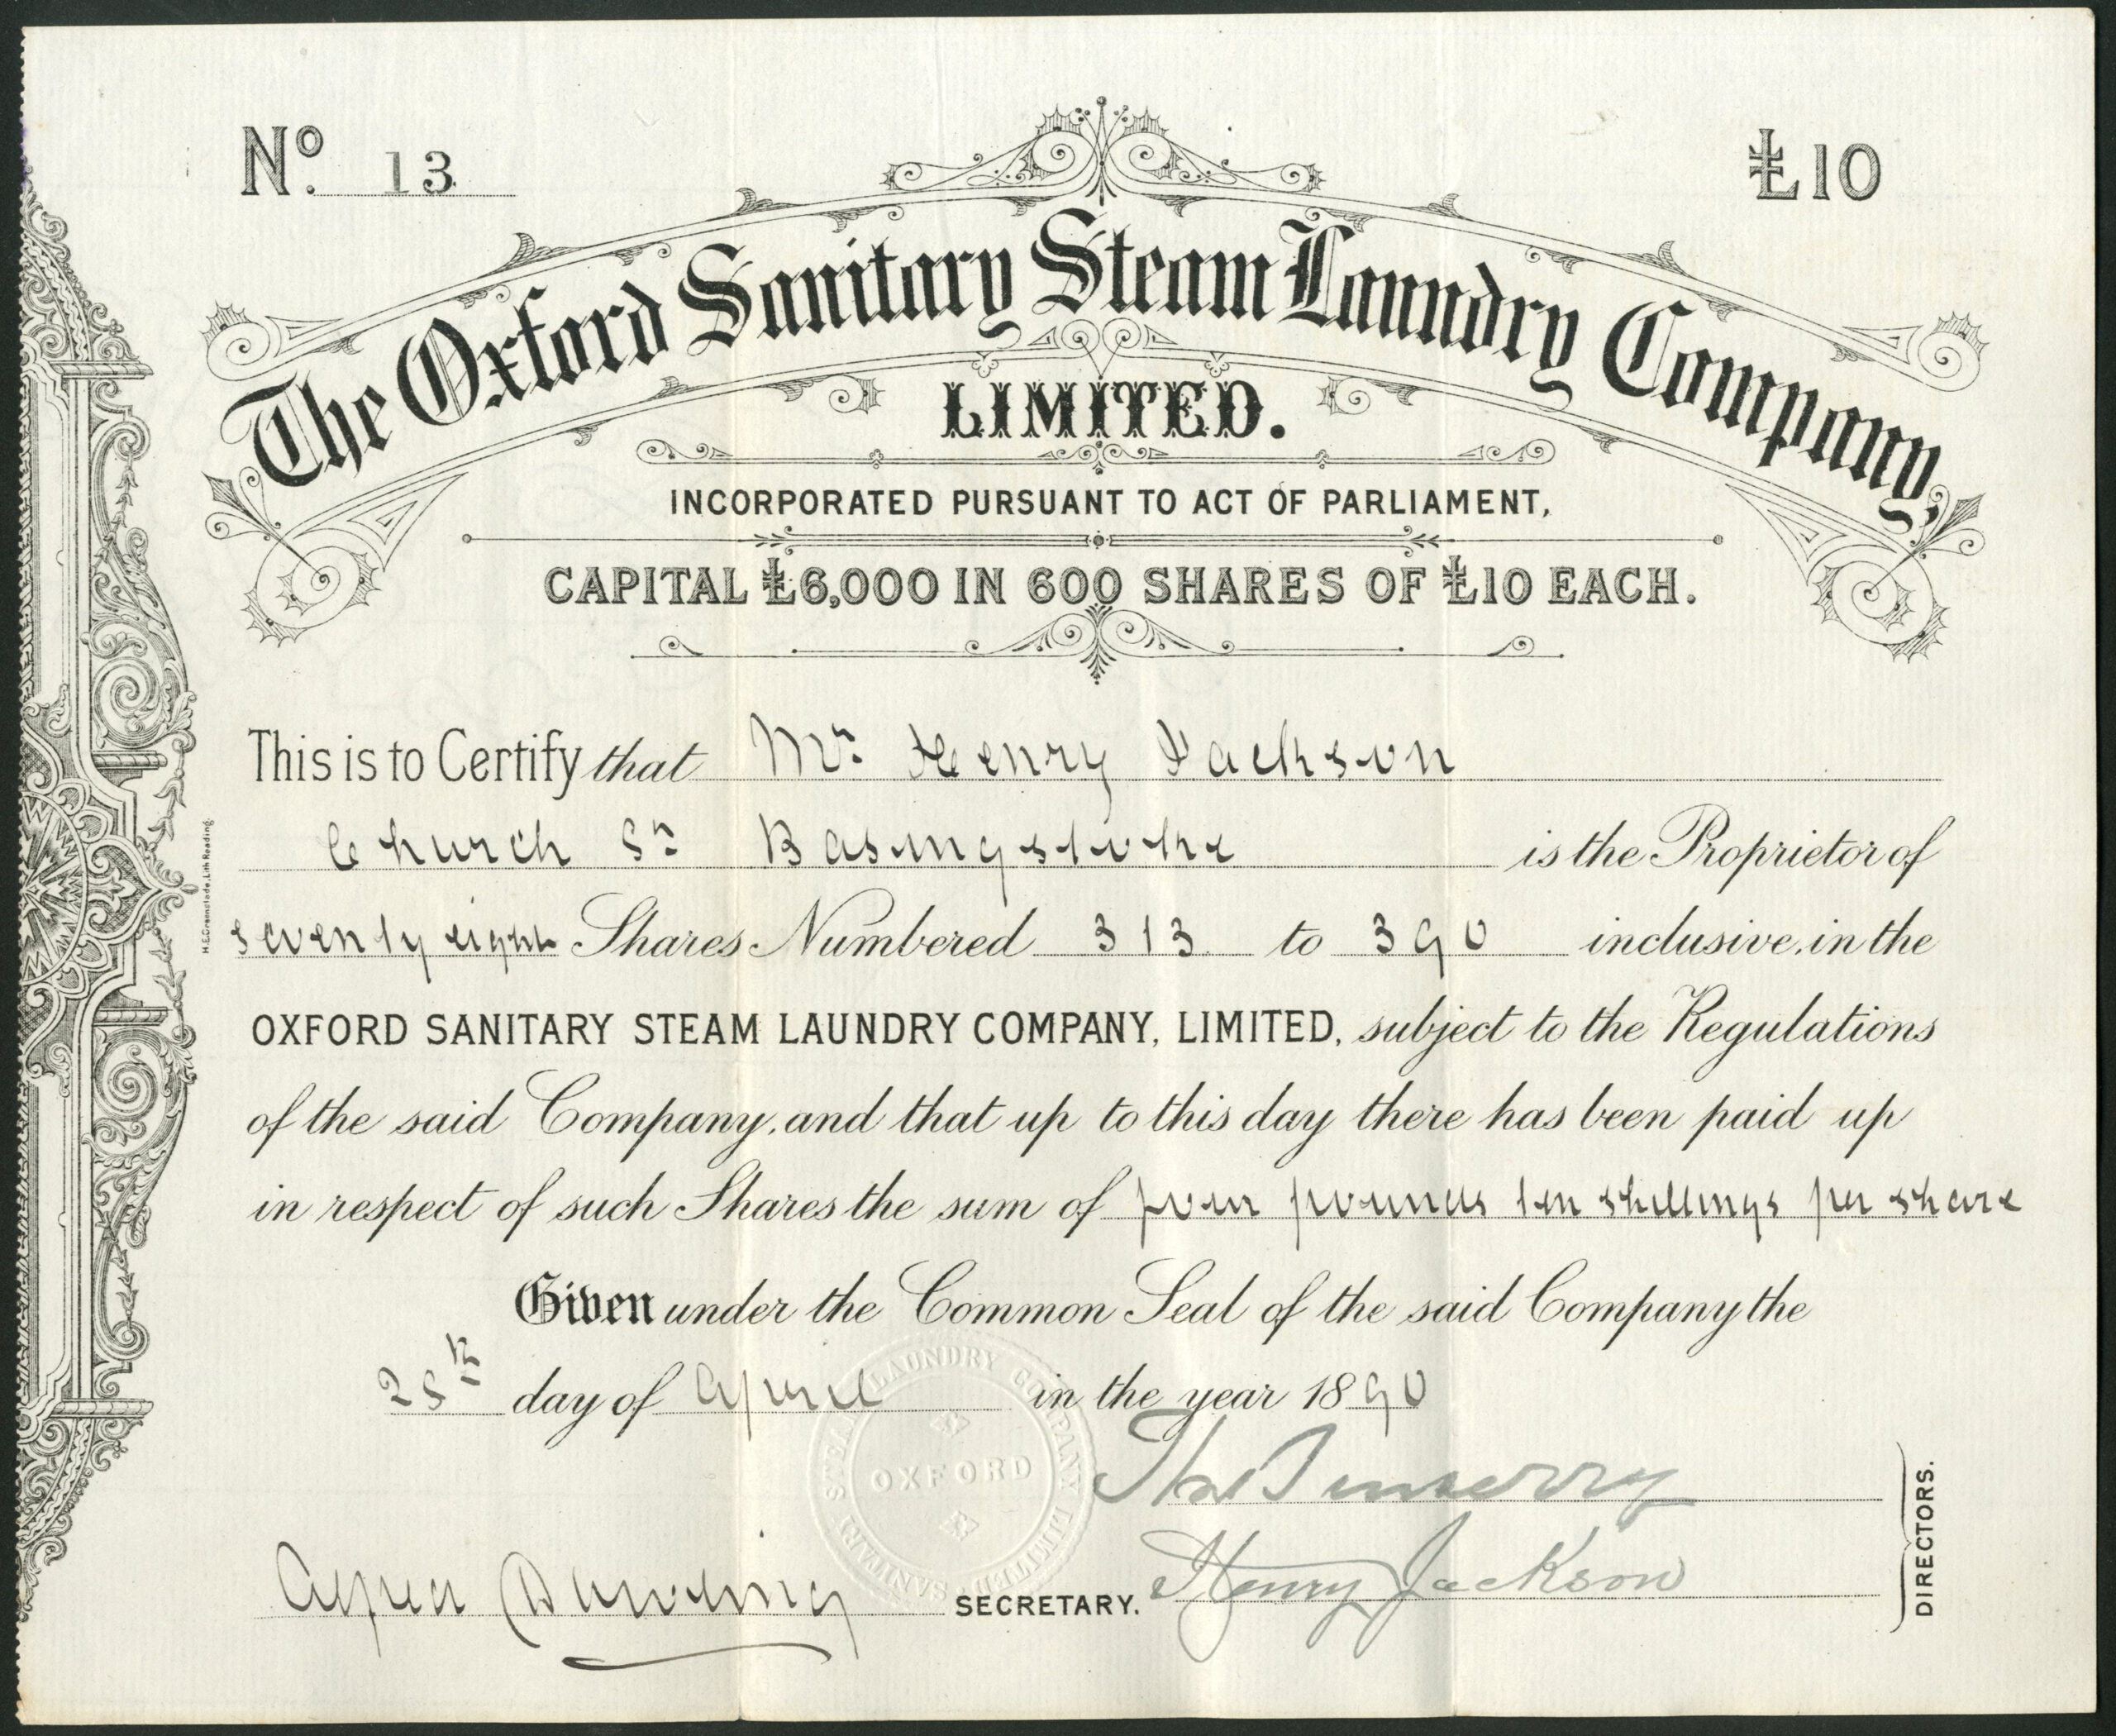 No. 13
£10
The Oxford Sanitary Steam Laundry Company,
LIMITED.
INCORPORATED PURSUANT TO ACT OF PARLIAMENT,
CAPITAL £6,000 IN 600 SHARES OF £10 EACH.
This is to Certify that Mr. Henry Jackson
Church St Basingstoke is the Proprietor of
seventy eight Shares Numbered 313 to 390 inclusive, in the
OXFORD SANITARY STEAM LAUNDRY COMPANY, LIMITED, subject to the Regulations
of the said Company, and that up to this day there has been paid up
in respect of such Shares the sum of four pounds ten shillings per share
Given under the Common Seal of the said Company the
25th day of April in the year 1890
SANITARY STEAM LAUNDRY COMPANY LIMITED
OXFORD
Henry Jackson
DIRECTORS.
Alfred SECRETARY.
Lith Reading.